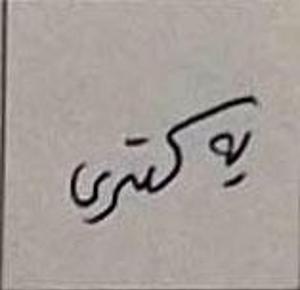 یه کتری